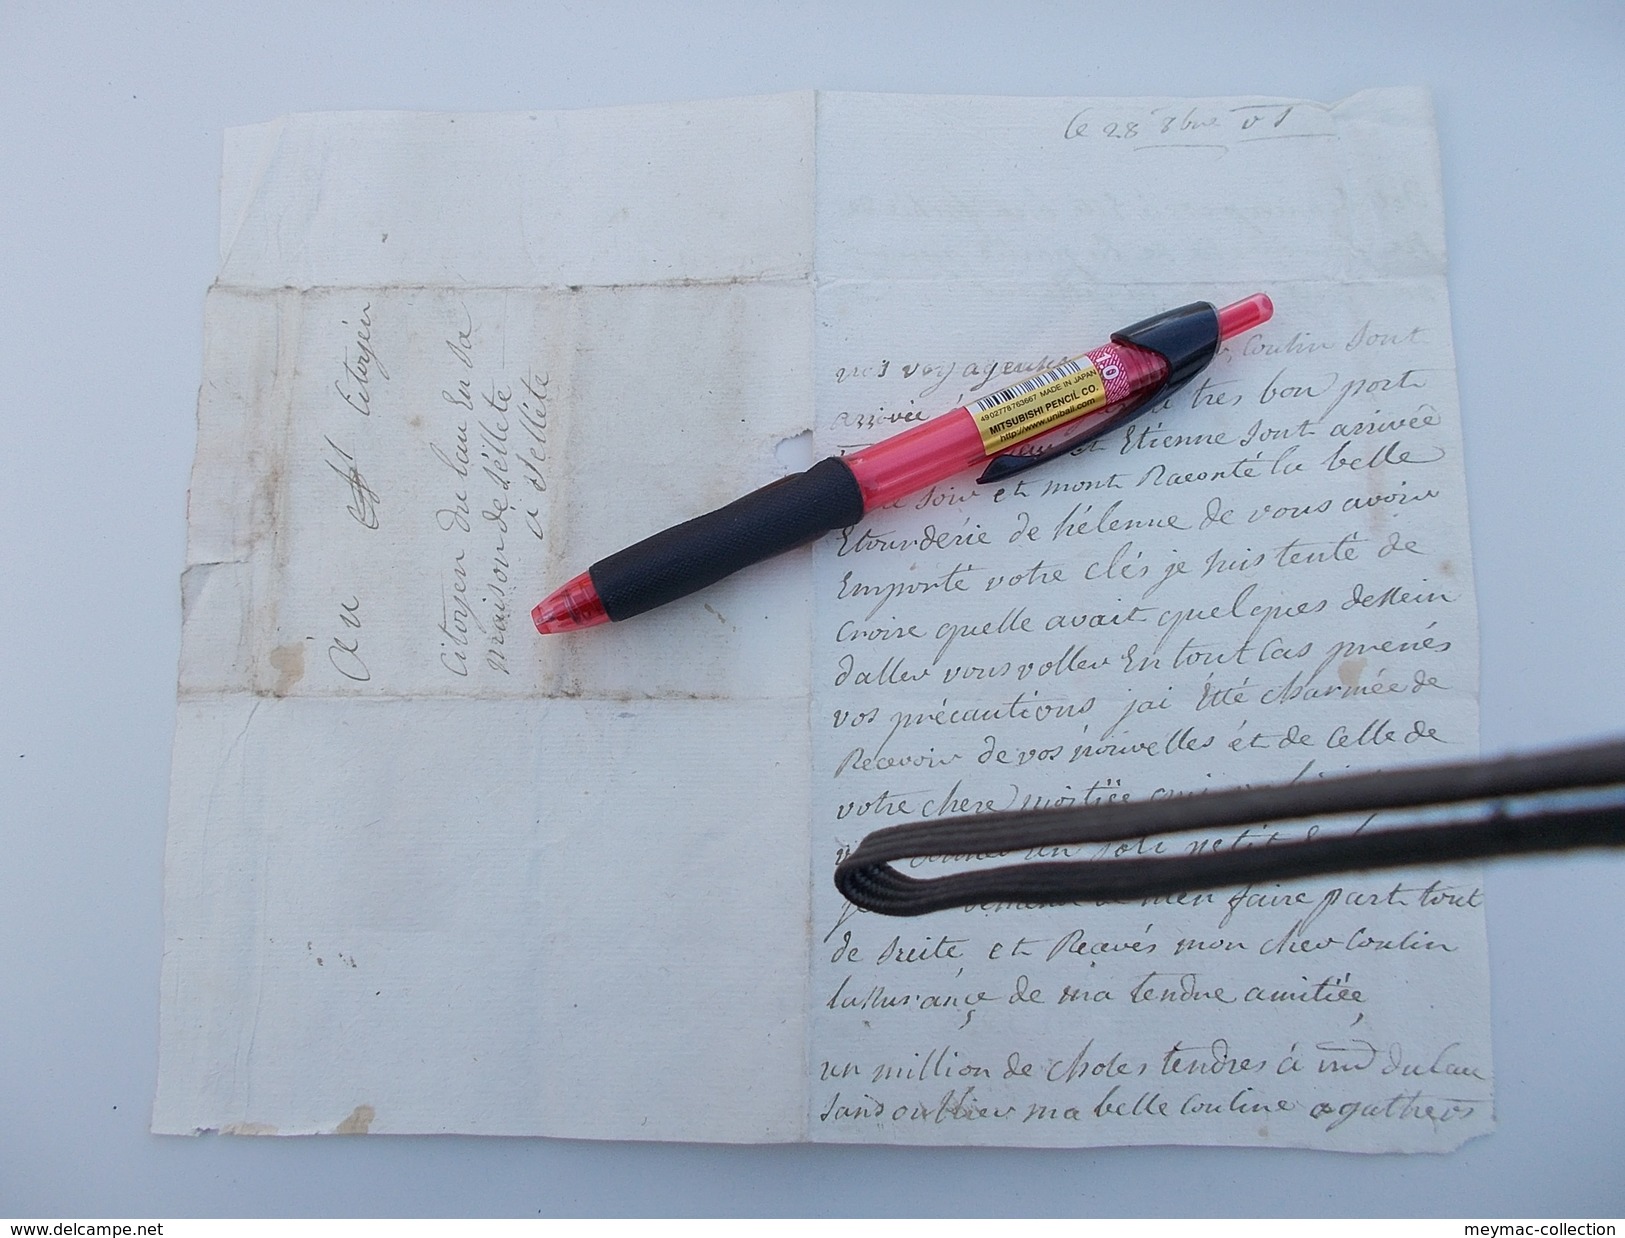 Au Citoyen
Citoyen du lau En sa
maison de sélète
a sellète
le 28 8bre v s
nos voyageurs cousin sont
arrivée tres bon port
et Etienne sont arrivée
soir et mont Raconté la belle
Etourderie de hélenne de vous avoir
Emporté votre clés je suis tenté de
croire quelle avait quelques dessein
daller vous voller En tout Cas prenés
vos précautions jai Été charmée de
Recevoir de vos nouvelles et de celle de
votre chere moitiëe
un joli petit
je de men faire part tout
de suite et Recevés mon cher Cousin
lassurançe de ma tendre amitiée
un million de choses tendres à md dulau
sans oublier ma belle cousine agathe
4902778763667 MADE IN JAPAN
MITSUBISHI PENCIL CO.
http://www.uniball.com
1.0
www.delcampe.net
meymac-collection